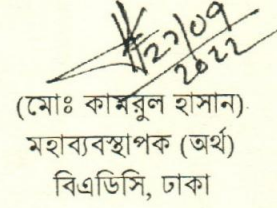 27/09
2022
(মোঃ কামরুল হাসান)
মহাব্যবস্থাপক (অর্থ)
বিএডিসি, ঢাকা